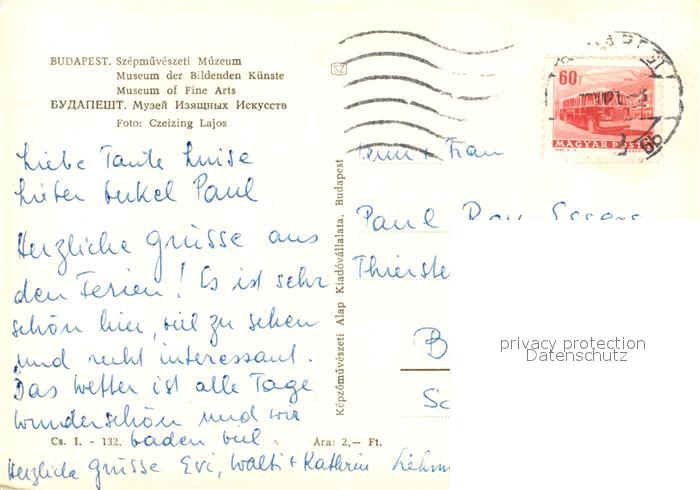 BUDAPEST. Szépművészeti Múzeum
Museum der Bildenden Künste
Museum of Fine Arts
БУДАПЕШТ. Музей Изящных Искусств
Foto: Czeizing Lajos
SZ
60f
MAGYAR POSTA
Liebe Tante Luise
Lieber Onkel Paul
Herzliche Grüsse aus
den Ferien! Es ist sehr
schön hier, viel zu sehen
und recht interessant.
Das Wetter ist alle Tage
wunderschön und wir
baden viel.
Herzliche Grüsse Evi, Walti + Kathrin
Cs. I. - 132.
Ára: 2,— Ft.
Képzőművészeti Alap Kiadóvállalata, Budapest
+ Frau
Paul
Thierste
B
Sc
privacy protection
Datenschutz